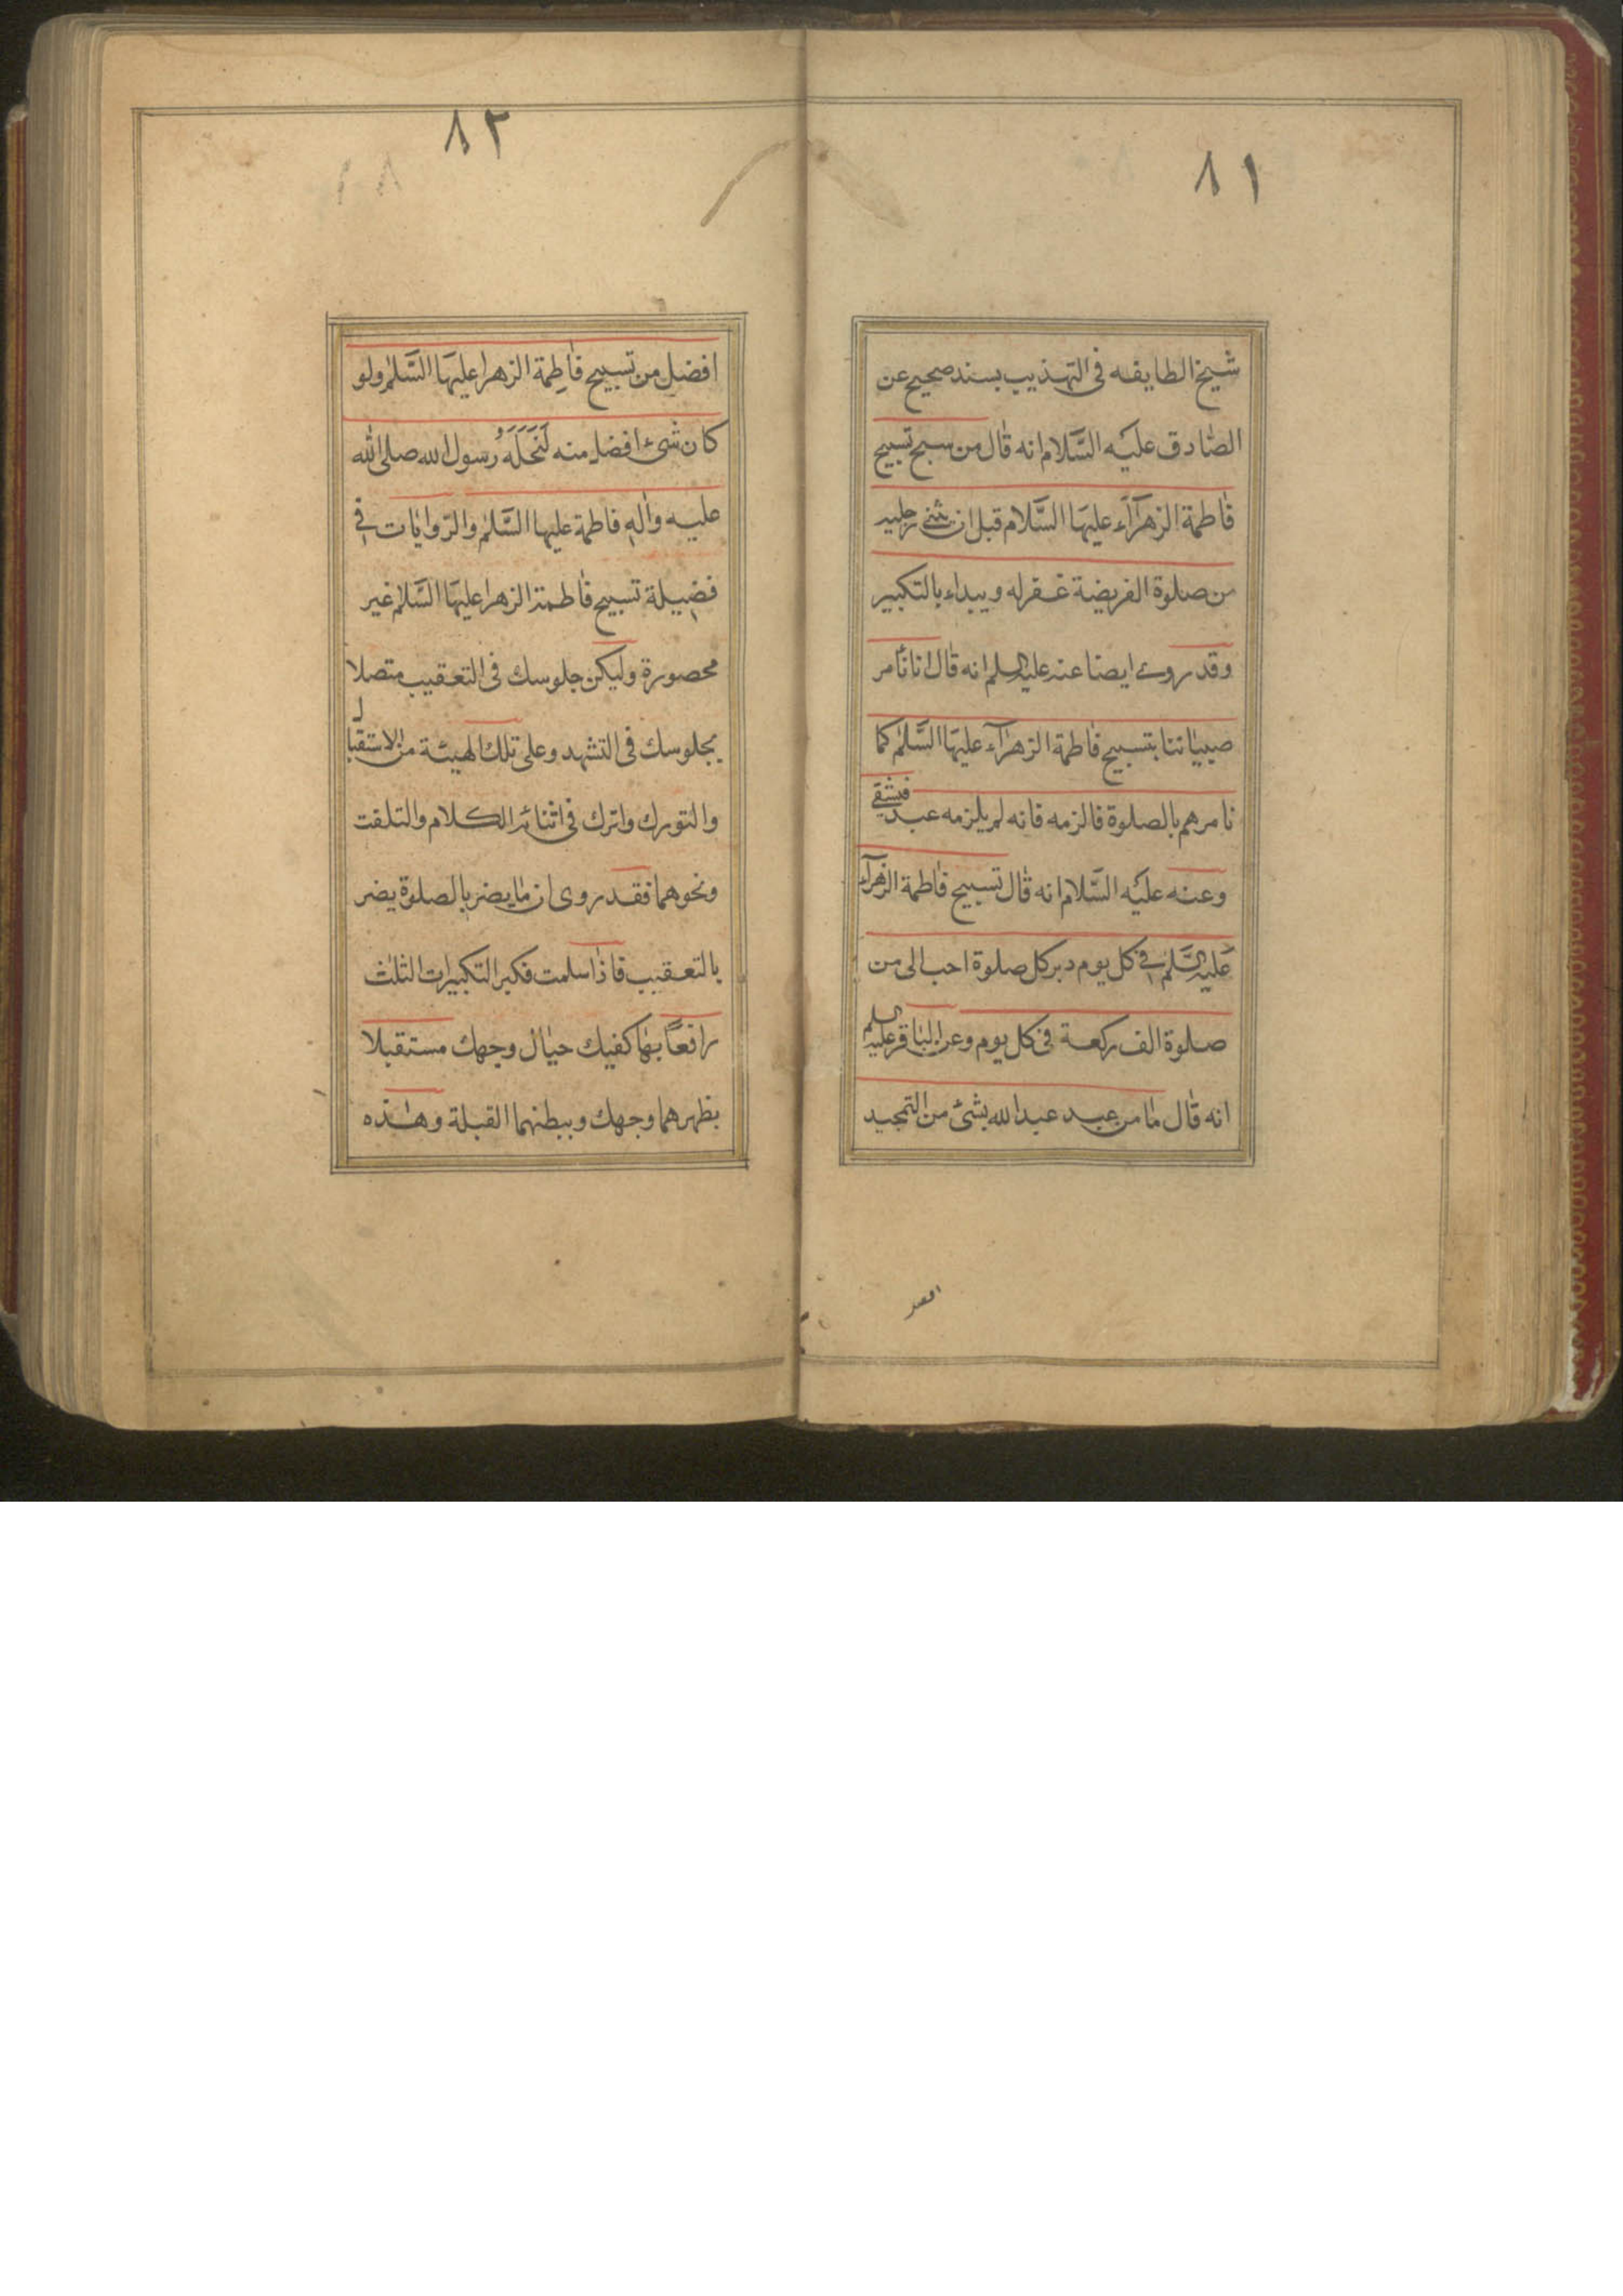 ٨١
شيخ الطايفه فى التهذيب بسند صحيح عن
الصّادق عليه السَّلام انه قال من سبح تسبيح
فاطمة الزهرآء عليها السَّلام قبل ان يثنى رجليه
من صلوة الفريضة غفر له ويبداء بالتكبير
وقد روى ايضا عنه عليه السلم انه قال انا نامر
صبياننا بتسبيح فاطمة الزهرآء عليها السَّلم كما
نامرهم بالصلوة فالزمه فانه لم يلزمه عبد فيشقى
وعنه عليه السَّلام انه قال تسبيح فاطمة الزهرآء
عليها السَّلم فى كل يوم دبر كل صلوة احب الى من
صلوة الف ركعة فى كل يوم وعن الباقر عليه السلم
انه قال ما من عبد عبد الله بشئ من التمجيد
افضل
٨٢
افضل من تسبيح فاطمة الزهرا عليها السَّلم ولو
كان شئ افضل منه لَنَحَلَهُ رسول الله صلى الله
عليه واله فاطمة عليها السَّلم والرّوايات فى
فضيلة تسبيح فاطمة الزهرا عليها السَّلام غير
محصورة وليكن جلوسك فى التعقيب متصلا
بجلوسك فى التشهد وعلى تلك الهيئة من الاستقبال
والتورك واترك فى اثنائه الكلام والتلفت
ونحوهما فقد روى ان ما يضر بالصلوة يضر
بالتعقيب فاذا سلمت فكبر التكبيرات الثلث
رافعاً بها كفيك حيال وجهك مستقبلا
بظهرهما وجهك وببطنهما القبلة وهذه